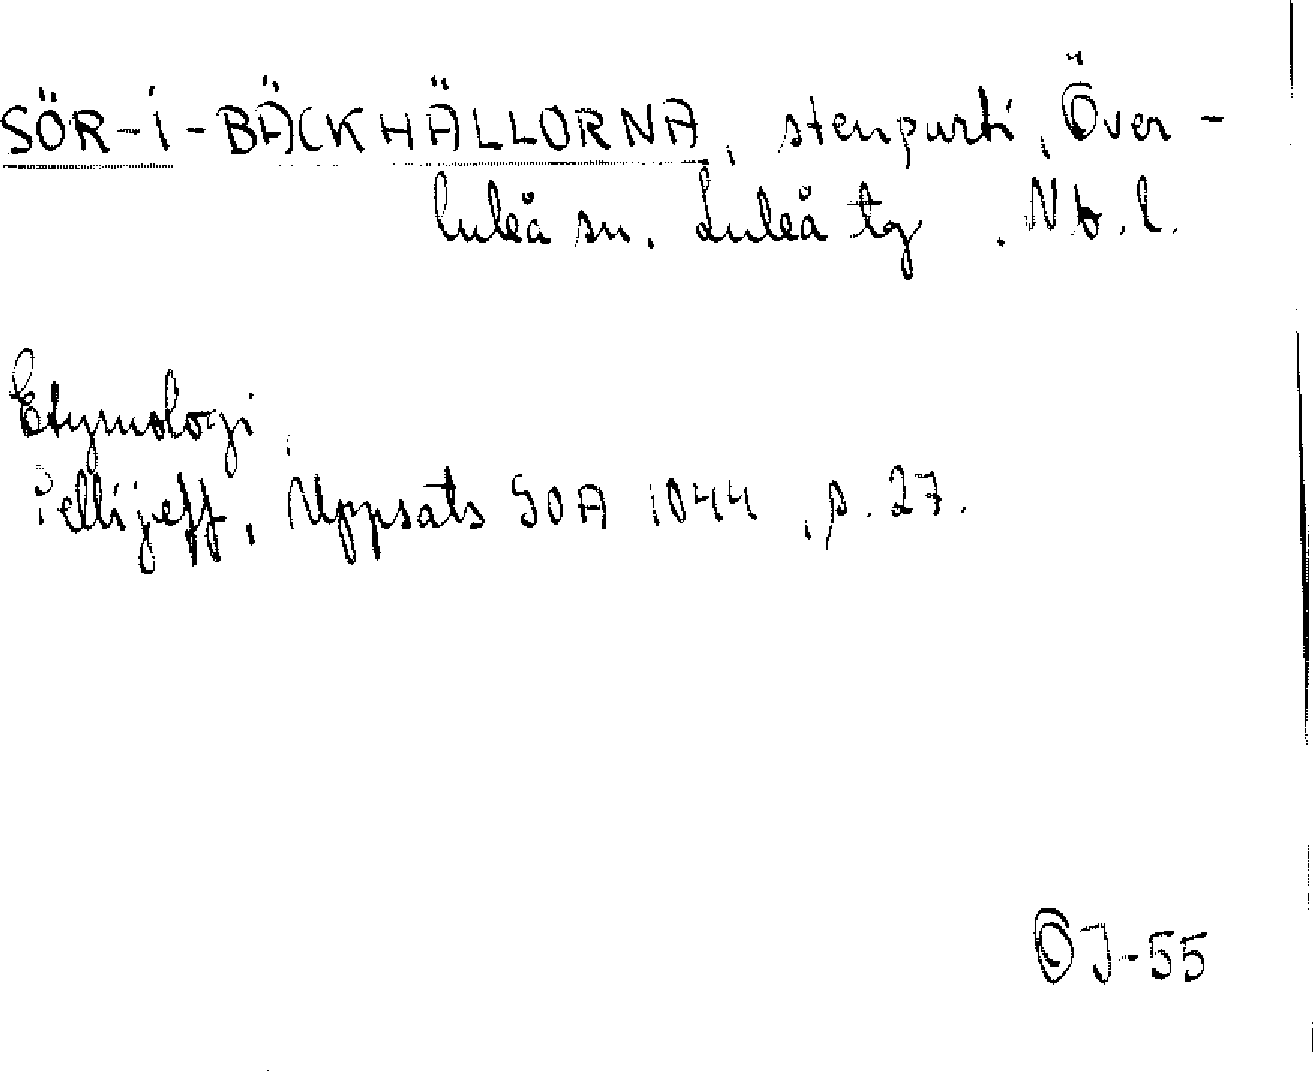 SÖR-I-BÄCKHÄLLORNA, stenparti, Över-
luleå sn. Luleå tg. Nb.l.
Etymologi.
Pellijeff, Uppsats SOA 1044, p. 27.
OJ-55